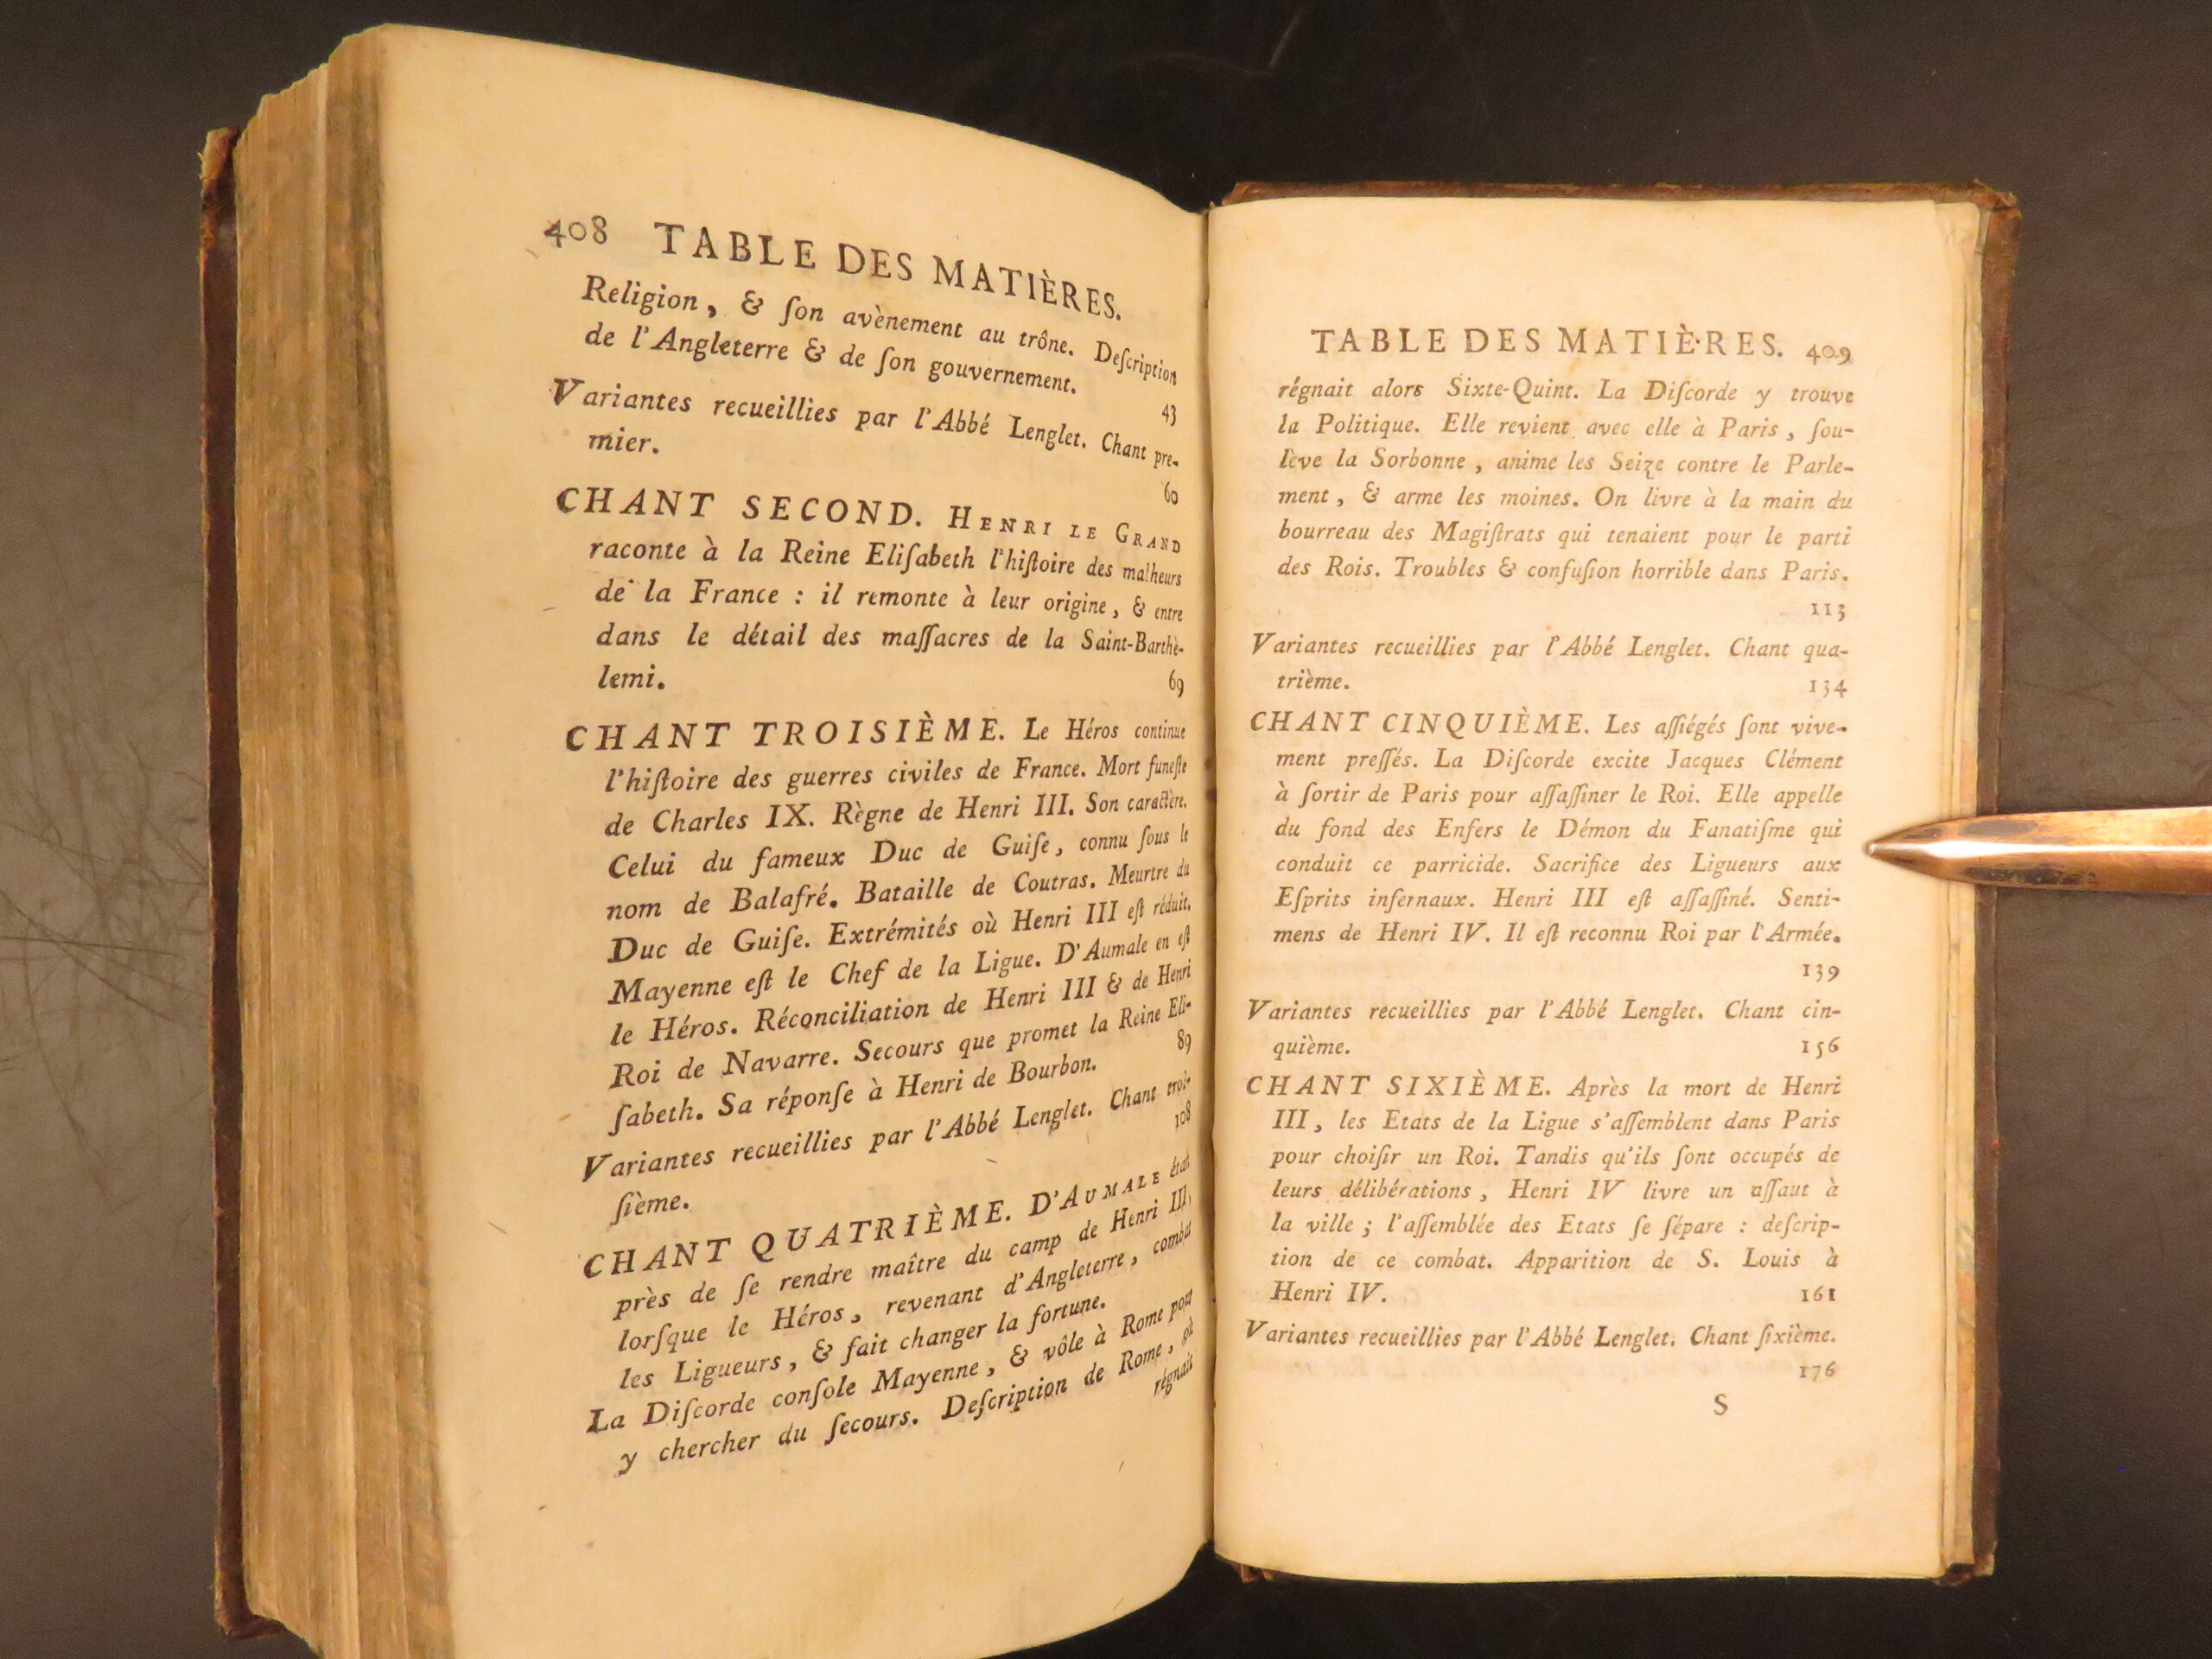 408 TABLE DES MATIÈRES.
Religion, & ſon avènement au trône. Deſcription
de l'Angleterre & de ſon gouvernement.
43
Variantes recueillies par l'Abbé Lenglet. Chant pre-
mier.
60
CHANT SECOND. HENRI LE GRAND
raconte à la Reine Eliſabeth l'hiſtoire des malheurs
de la France : il remonte à leur origine, & entre
dans le détail des maſſacres de la Saint-Barthè-
lemi. 69
CHANT TROISIÈME. Le Héros continue
l'hiſtoire des guerres civiles de France. Mort funeſte
de Charles IX. Règne de Henri III. Son caractère.
Celui du fameux Duc de Guiſe, connu ſous le
nom de Balafré. Bataille de Coutras. Meurtre du
Duc de Guiſe. Extrémités où Henri III eſt réduit.
Mayenne eſt le Chef de la Ligue. D'Aumale en eſt
le Héros. Réconciliation de Henri III & de Henri
Roi de Navarre. Secours que promet la Reine Eli-
ſabeth. Sa réponſe à Henri de Bourbon. 89
Variantes recueillies par l'Abbé Lenglet. Chant troi-
ſième. 108
CHANT QUATRIÈME. D'AUMALE était
près de ſe rendre maître du camp de Henri III,
lorſque le Héros, revenant d'Angleterre, combat
les Ligueurs, & fait changer la fortune.
La Diſcorde conſole Mayenne, & vôle à Rome pour
y chercher du ſecours. Deſcription de Rome, où
régnait
TABLE DES MATIÈRES. 409
régnait alors Sixte-Quint. La Diſcorde y trouve
la Politique. Elle revient avec elle à Paris, ſou-
lève la Sorbonne, anime les Seize contre le Parle-
ment, & arme les moines. On livre à la main du
bourreau des Magiſtrats qui tenaient pour le parti
des Rois. Troubles & confuſion horrible dans Paris.
113
Variantes recueillies par l'Abbé Lenglet. Chant qua-
trième. 134
CHANT CINQUIÈME. Les aſſiégés ſont vive-
ment preſſés. La Diſcorde excite Jacques Clément
à ſortir de Paris pour aſſaſſiner le Roi. Elle appelle
du fond des Enfers le Démon du Fanatiſme qui
conduit ce parricide. Sacrifice des Ligueurs aux
Eſprits infernaux. Henri III eſt aſſaſſiné. Senti-
mens de Henri IV. Il eſt reconnu Roi par l'Armée.
139
Variantes recueillies par l'Abbé Lenglet. Chant cin-
quième. 156
CHANT SIXIÈME. Après la mort de Henri
III, les Etats de la Ligue s'aſſemblent dans Paris
pour choiſir un Roi. Tandis qu'ils ſont occupés de
leurs délibérations, Henri IV livre un aſſaut à
la ville ; l'aſſemblée des Etats ſe ſépare : deſcrip-
tion de ce combat. Apparition de S. Louis à
Henri IV. 161
Variantes recueillies par l'Abbé Lenglet. Chant ſixième.
176
S